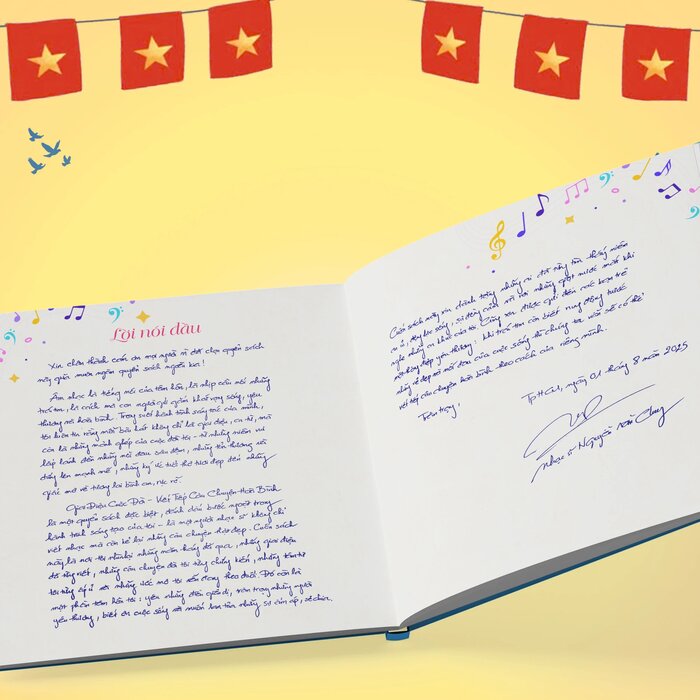 Lời nói đầu
Xin chân thành cảm ơn mọi người vì đã chọn quyển sách
này giữa muôn ngàn quyển sách ngoài kia!
Âm nhạc là tiếng nói của tâm hồn, là nhịp cầu nối những
trái tim, là cách mà con người gửi gắm khát vọng sống, yêu
thương và hoà bình. Trong suốt hành trình sáng tác của mình,
tôi luôn tin rằng mỗi bài hát không chỉ là giai điệu, ca từ, mà
còn là những mảnh ghép của cuộc đời tôi - từ những niềm vui
lấp lánh đến những nỗi đau sâu đậm, những tổn thương rồi
đứng lên mạnh mẽ, những ký ức tuổi thơ tươi đẹp đến những
giấc mơ về tương lai bình an, rực rỡ.
Giai Điệu Cuộc Đời - Viết Tiếp Câu Chuyện Hoà Bình
là một quyển sách đặc biệt, đánh dấu bước ngoặt trong
hành trình sáng tạo của tôi - là một người nhạc sĩ không chỉ
viết nhạc mà còn kể lại những câu chuyện thật đẹp. Cuốn sách
này là nơi tôi nhìn lại những năm tháng đã qua, những giai điệu
đã từng viết, những câu chuyện đã từng chứng kiến, những tâm tư
tôi từng ấp ủ và những ước mơ tôi vẫn đang theo đuổi. Đó còn là
một phần tâm hồn tôi: yêu những điều giản dị, trân trọng những người
yêu thương, biết ơn cuộc sống và muốn lan toả những sự ấm áp, sẻ chia.
Cuốn sách này xin dành tặng những ai đã từng tìm thấy niềm
an ủi, động lực sống, sự đồng cảm và rơi những giọt nước mắt khi
nghe những ca khúc của tôi. Cũng xin được gửi đến các bạn trẻ
một thông điệp yêu thương: khi trái tim còn biết rung động trước
những vẻ đẹp và nỗi đau của cuộc sống thì chúng ta vẫn sẽ có thể
viết tiếp câu chuyện hoà bình theo cách của riêng mình.
Trân trọng!
TpHCM, ngày 01 tháng 8 năm 2025
Nhạc sĩ Nguyễn Văn Chung